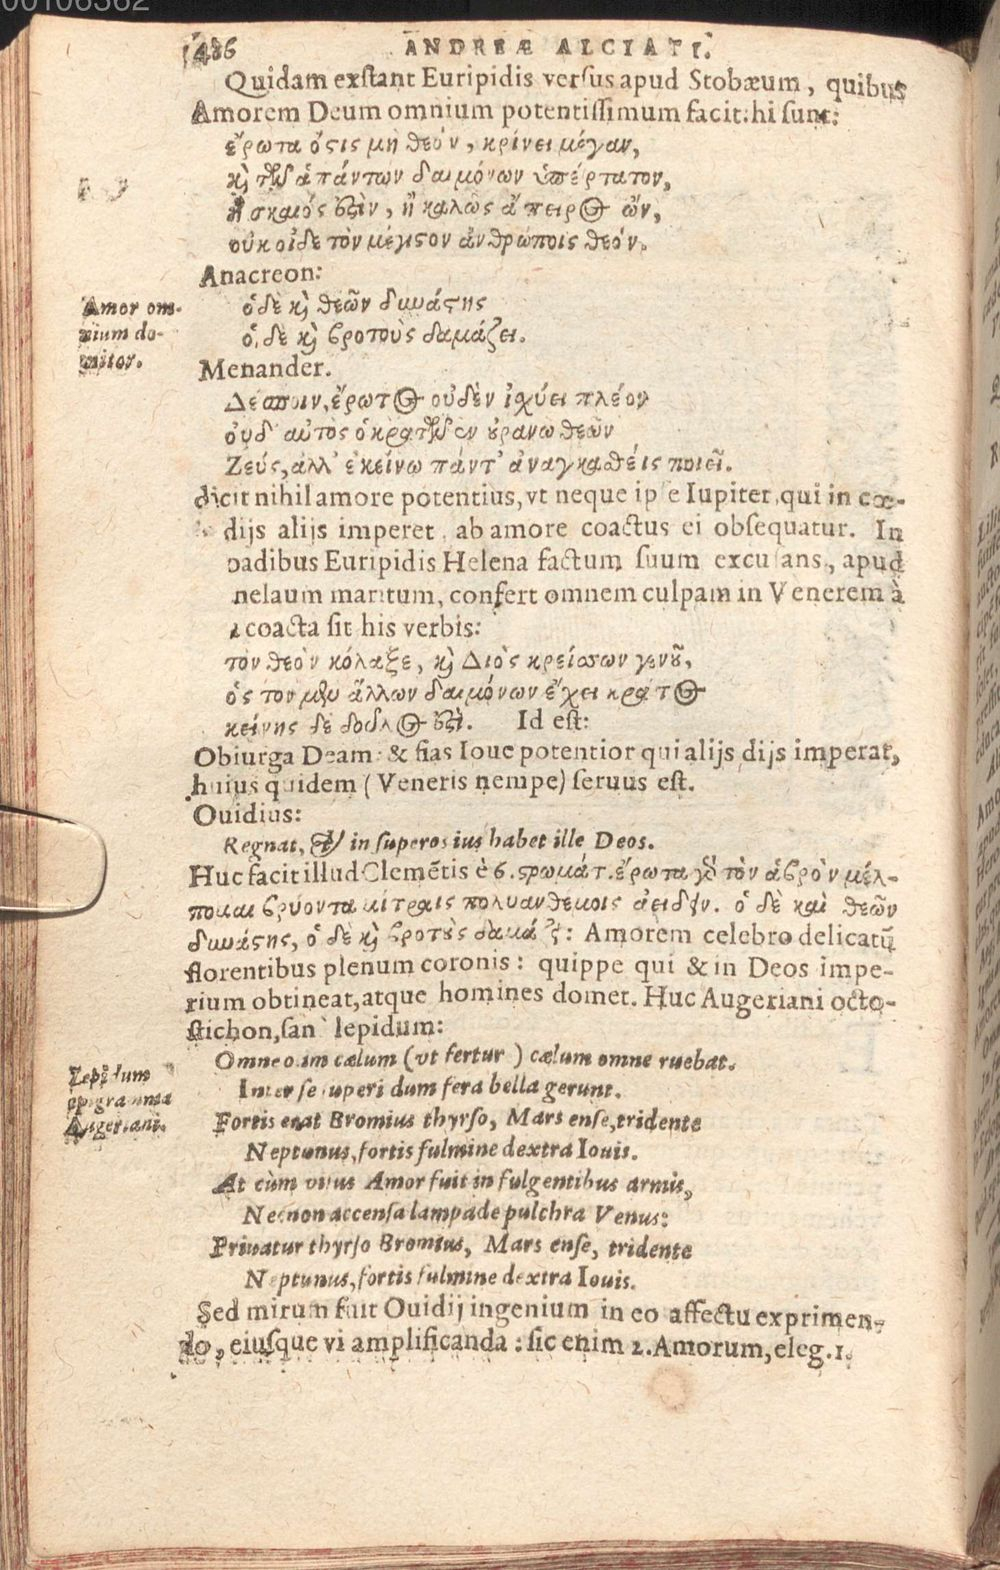 00106362
486 ANDREÆ ALCIATI.
Quidam exſtant Euripidis verſus apud Stobæum, quibus
Amorem Deum omnium potentiſſimum facit: hi ſunt:
ἔρωτα ὅςις μὴ θεόν, κρίνει μέγαν,
κὶ τῶν ἁπάντων δαιμόνων ὑπέρτατον,
ἢ σκαιός ἐστιν, ἢ καλῶς ἄπειρος ὢν,
οὐκ οἶδε τὸν μέγιςον ἀνθρώποις θεόν.
Anacreon:
ὅδε κὶ θεῶν δυνάςης
ὅδε κὶ βροτοὺς δαμάζει.
Amor om-
nium do-
mitor.
Menander.
Δέσποιν, ἔρωτος οὐδὲν ἰχύει πλέον
οὐδ' αὐτὸς ὁ κρατῶν ἐν ουρανω θεῶν
Ζεύς, ἀλλ' ἐκείνω πάντ' ἀναγκαθείς ποιεῖ.
dicit nihil amore potentius, vt neque ipſe Iupiter, qui in cœ-
dijs alijs imperet, ab amore coactus ei obſequatur. In
oadibus Euripidis Helena factum ſuum excuſans, apud
nelaum maritum, confert omnem culpam in Venerem à
a coacta ſit his verbis:
τὸν θεὸν κόλαζε, κὶ Διὸς κρείσσων γενοῦ,
ὃς τὸν μὲν ἄλλων δαιμόνων ἔχει κράτος
κείνης δὲ δοῦλός ἐστι. Id eſt:
Obiurga Deam: & fias Ioue potentior qui alijs dijs imperat,
huius quidem (Veneris nempe) ſeruus eſt.
Ouidius:
Regnat, & in ſuperos ius habet ille Deos.
Huc facit illud Clemẽtis è 6. ςρωμάτ. ἔρωτα γὸ τὸν ἁβρὸν μέλ-
πομαι βρύοντα μίτραις πολυανθεμοις ἀειδειν. ὁ δὲ καὶ θεῶν
δυνάςης, ὁ δὲ κὶ βροτοὺς δαμάζει: Amorem celebro delicatũ
florentibus plenum coronis: quippe qui & in Deos impe-
rium obtineat, atque homines domet. Huc Augeriani octo-
ſtichon, ſanè lepidum:
Lepidum
epigramma
Augeriani.
Omne olim cælum (vt fertur) cælum omne ruebat.
Inter ſe ſuperi dum fera bella gerunt.
Fortis erat Bromius thyrſo, Mars enſe, tridente
Neptunus, fortis fulmine dextra Iouis.
At cùm viſus Amor fuit in fulgentibus armis,
Necnon accenſa lampade pulchra Venus:
Priuatur thyrſo Bromius, Mars enſe, tridente
Neptunus, fortis fulmine dextra Iouis.
Sed mirum fuit Ouidij ingenium in eo affectu exprimen-
do, eiuſque vi amplificanda: ſic enim 2. Amorum, eleg. 1.